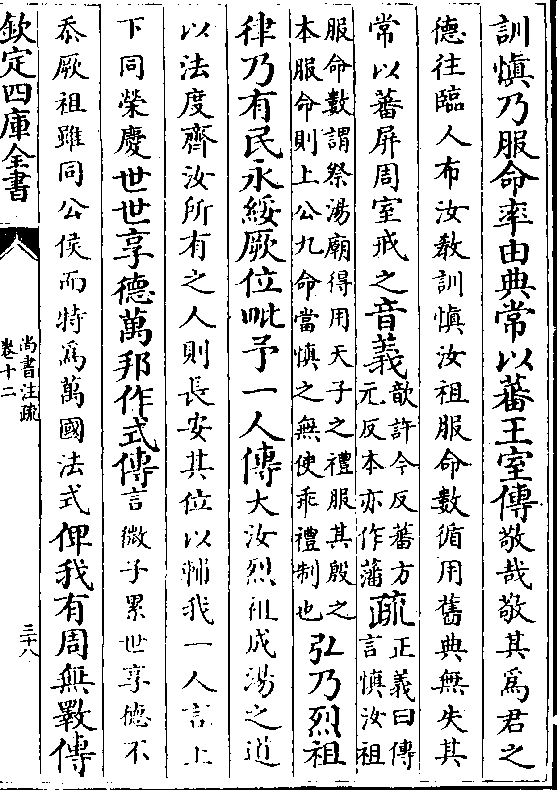 訓慎乃服命率由典常以蕃王室傳敬哉敬其為君之
德往臨人布汝教訓慎汝祖服命數循用舊典無失其
常以蕃屏周室戒之音義歆許今反蕃方
元反本亦作藩疏正義曰傳
言慎汝祖
服命數謂祭湯廟得用天子之禮服其殷之
本服命則上公九命當慎之無使乖禮制也弘乃烈祖
律乃有民永綏厥位毗予一人傳大汝烈祖成湯之道
以法度齊汝所有之人則長安其位以輔我一人言上
下同榮慶世世享德萬邦作式傳言微子累世享德不
忝厥祖雖同公侯而特為萬國法式俾我有周無斁傳
欽定四庫全書
尚書注疏
卷十二
三十八